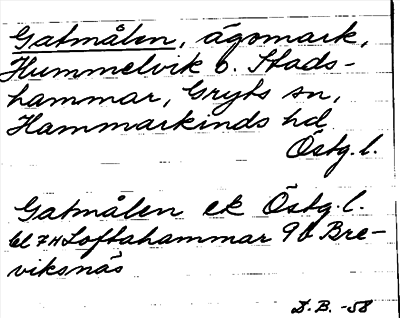 Gatmålen, ägomark,
Hummelvik o. Stads-
hammar, Gryts sn,
Hammarkinds hd
Östg.l.
Gatmålen ek Östg.l.
bl 7H Loftahammar 9b Bre-
viksnäs
D.B. -58